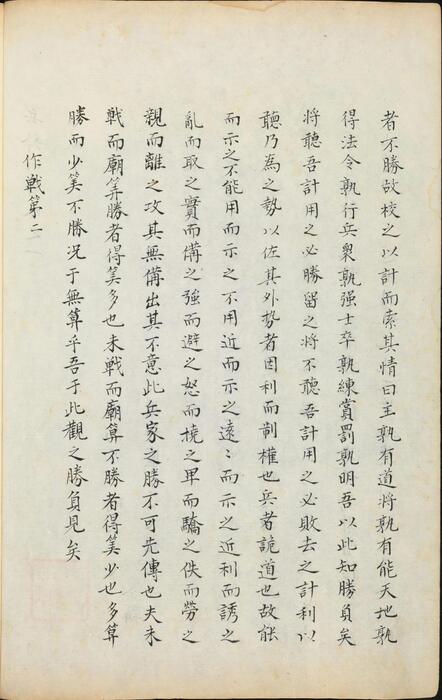 者不勝故校之以計而索其情曰主孰有道將孰有能天地孰
得法令孰行兵衆孰强士卒孰練賞罰孰明吾以此知勝負矣
將聽吾計用之必勝留之將不聽吾計用之必敗去之計利以
聽乃為之勢以佐其外勢者因利而制權也兵者詭道也故能
而示之不能用而示之不用近而示之遠〻而示之近利而誘之
亂而取之實而備之強而避之怒而撓之卑而驕之佚而勞之
親而離之攻其無備出其不意此兵家之勝不可先傳也夫未
戦而廟筭勝者得筭多也未戦而廟算不勝者得筭少也多算
勝而少筭不勝況于無算乎吾于此觀之勝負見矣
作戦第二